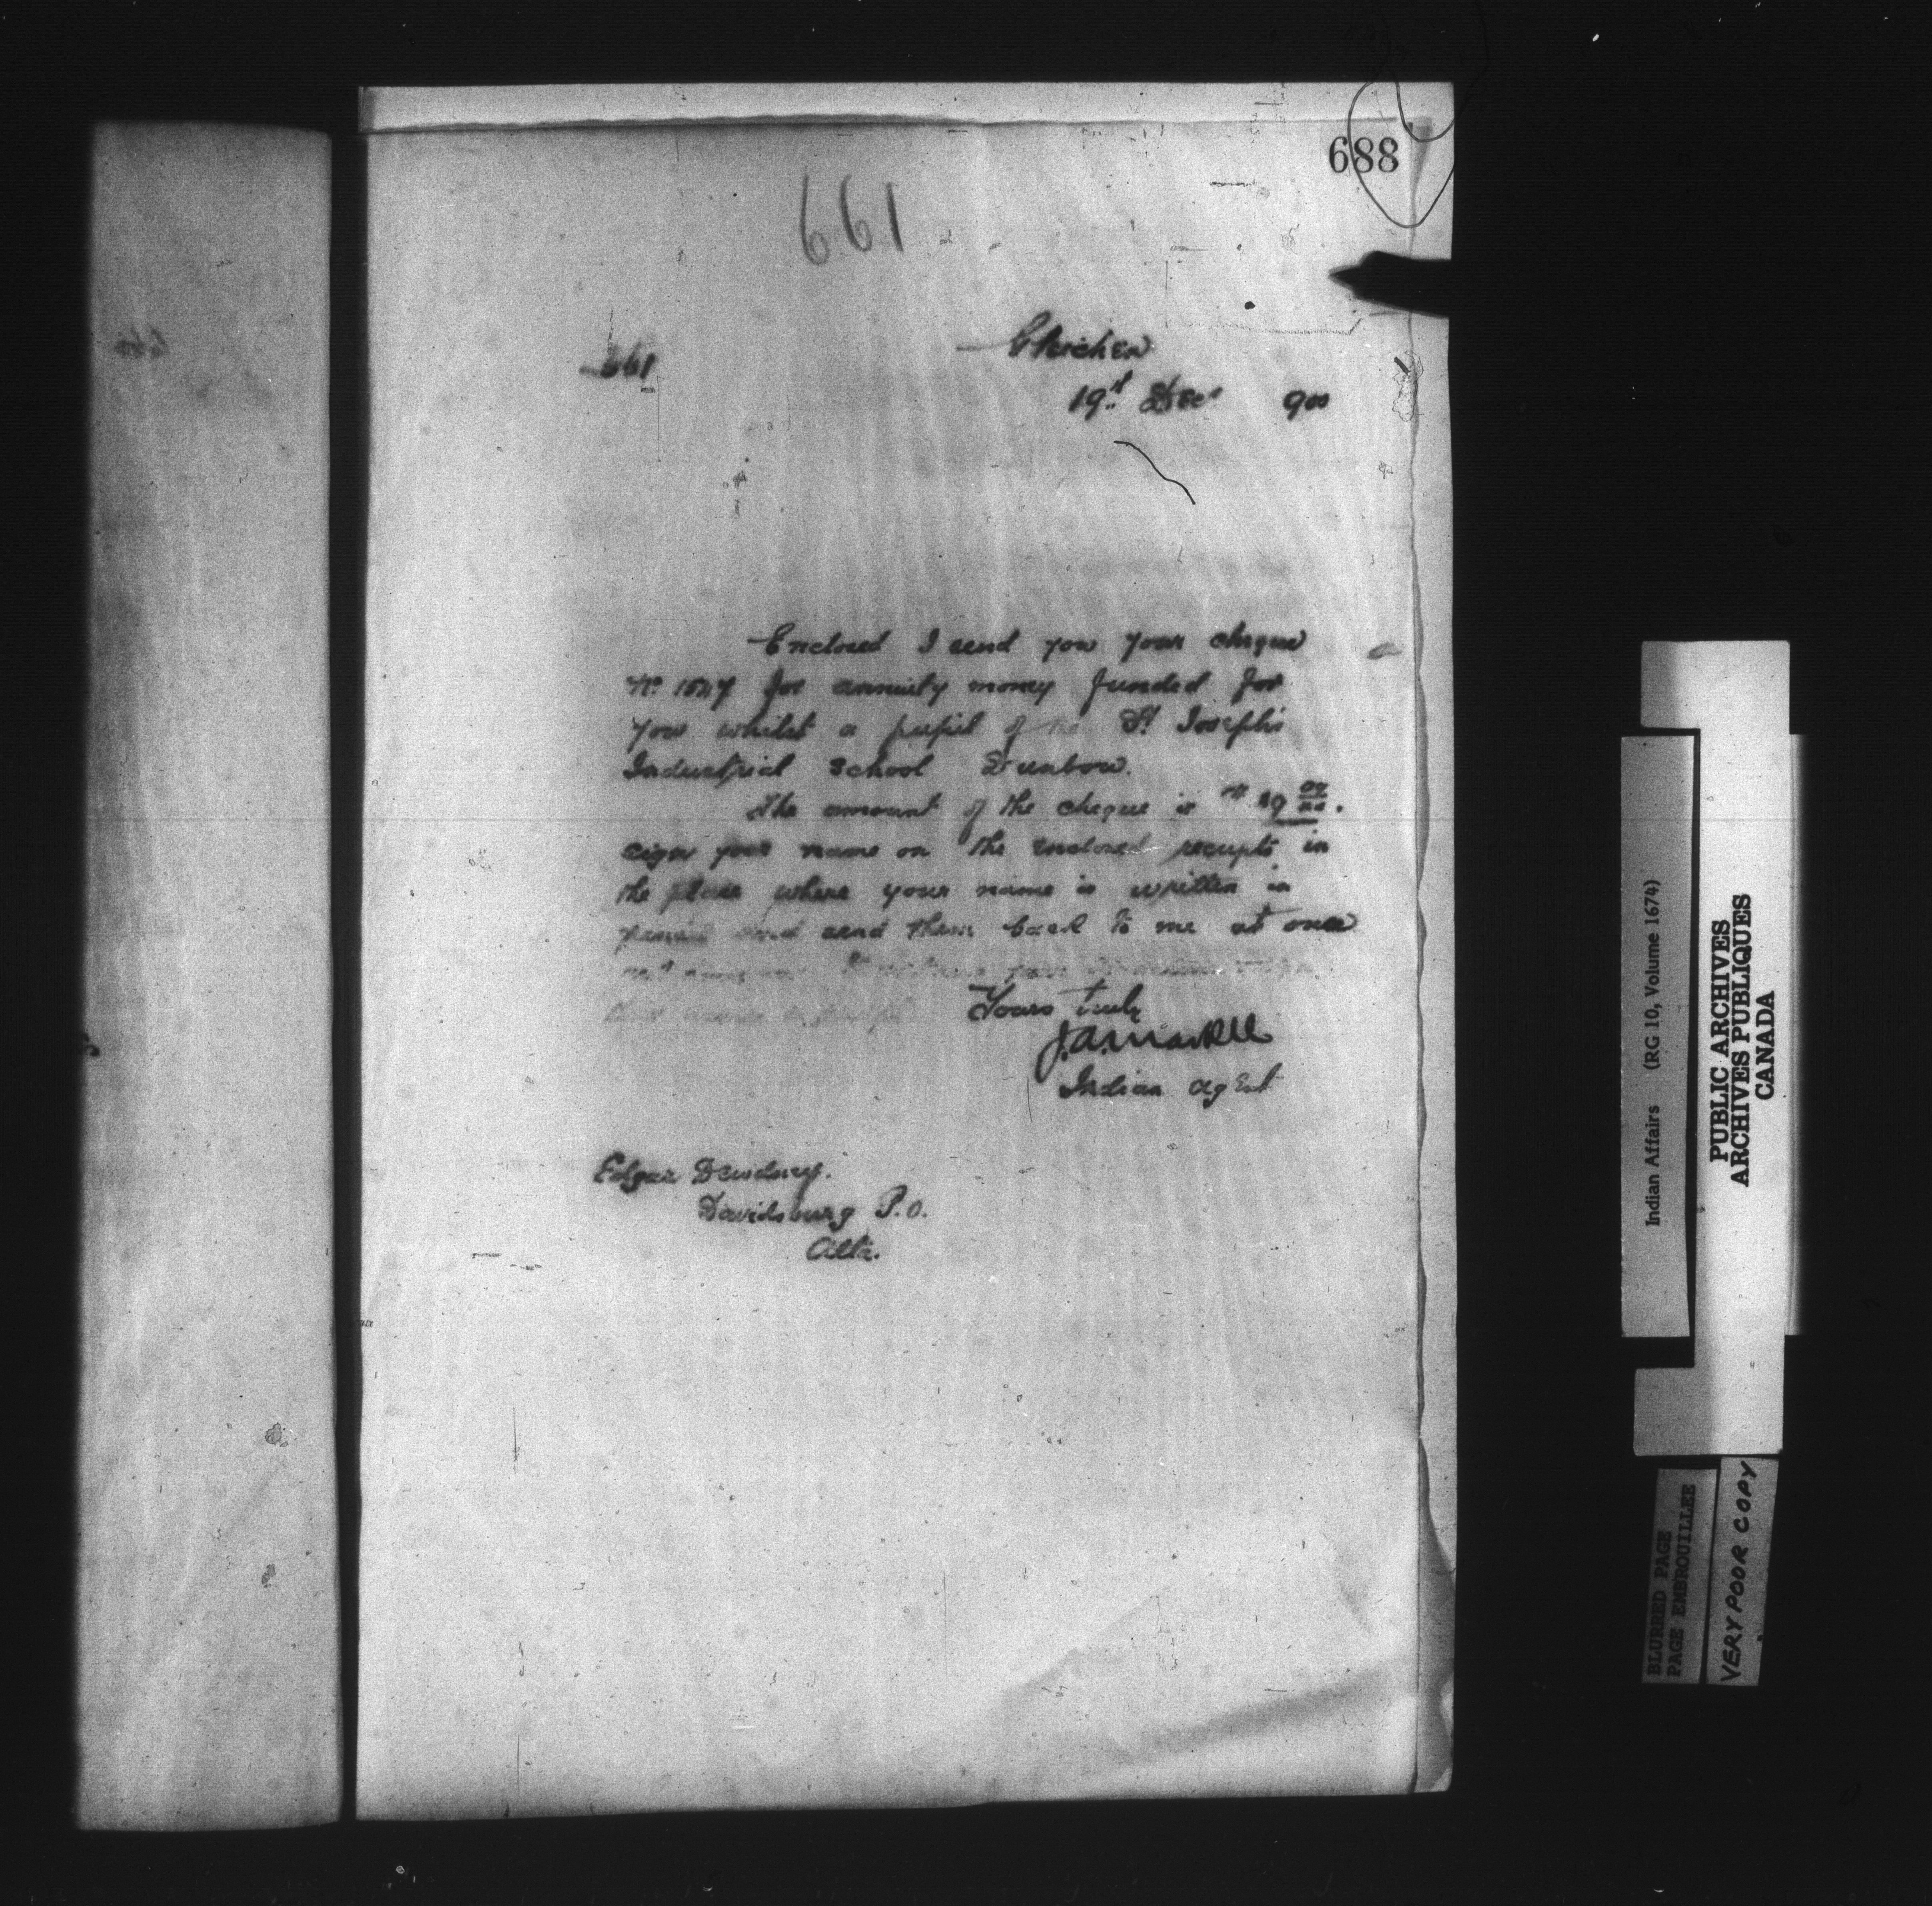 688
661
661
Gleichen
19th Dec 900
Enclosed I send you your cheque
No for annuity money funded for
you whilst a pupil of the St Joseph's
Industrial School Dunbow.
The amount of the cheque is
sign your name on the enclosed receipts in
the place where your name is written in
pencil and send them back to me at once
Yours truly
J.A. Markle
Indian Agent
Edgar Dewdney.
Davisburg P.O.
Alta.
Indian Affairs (RG 10, Volume 1674)
PUBLIC ARCHIVES
ARCHIVES PUBLIQUES
CANADA
BLURRED PAGE
PAGE EMBROUILLEE
VERY POOR COPY